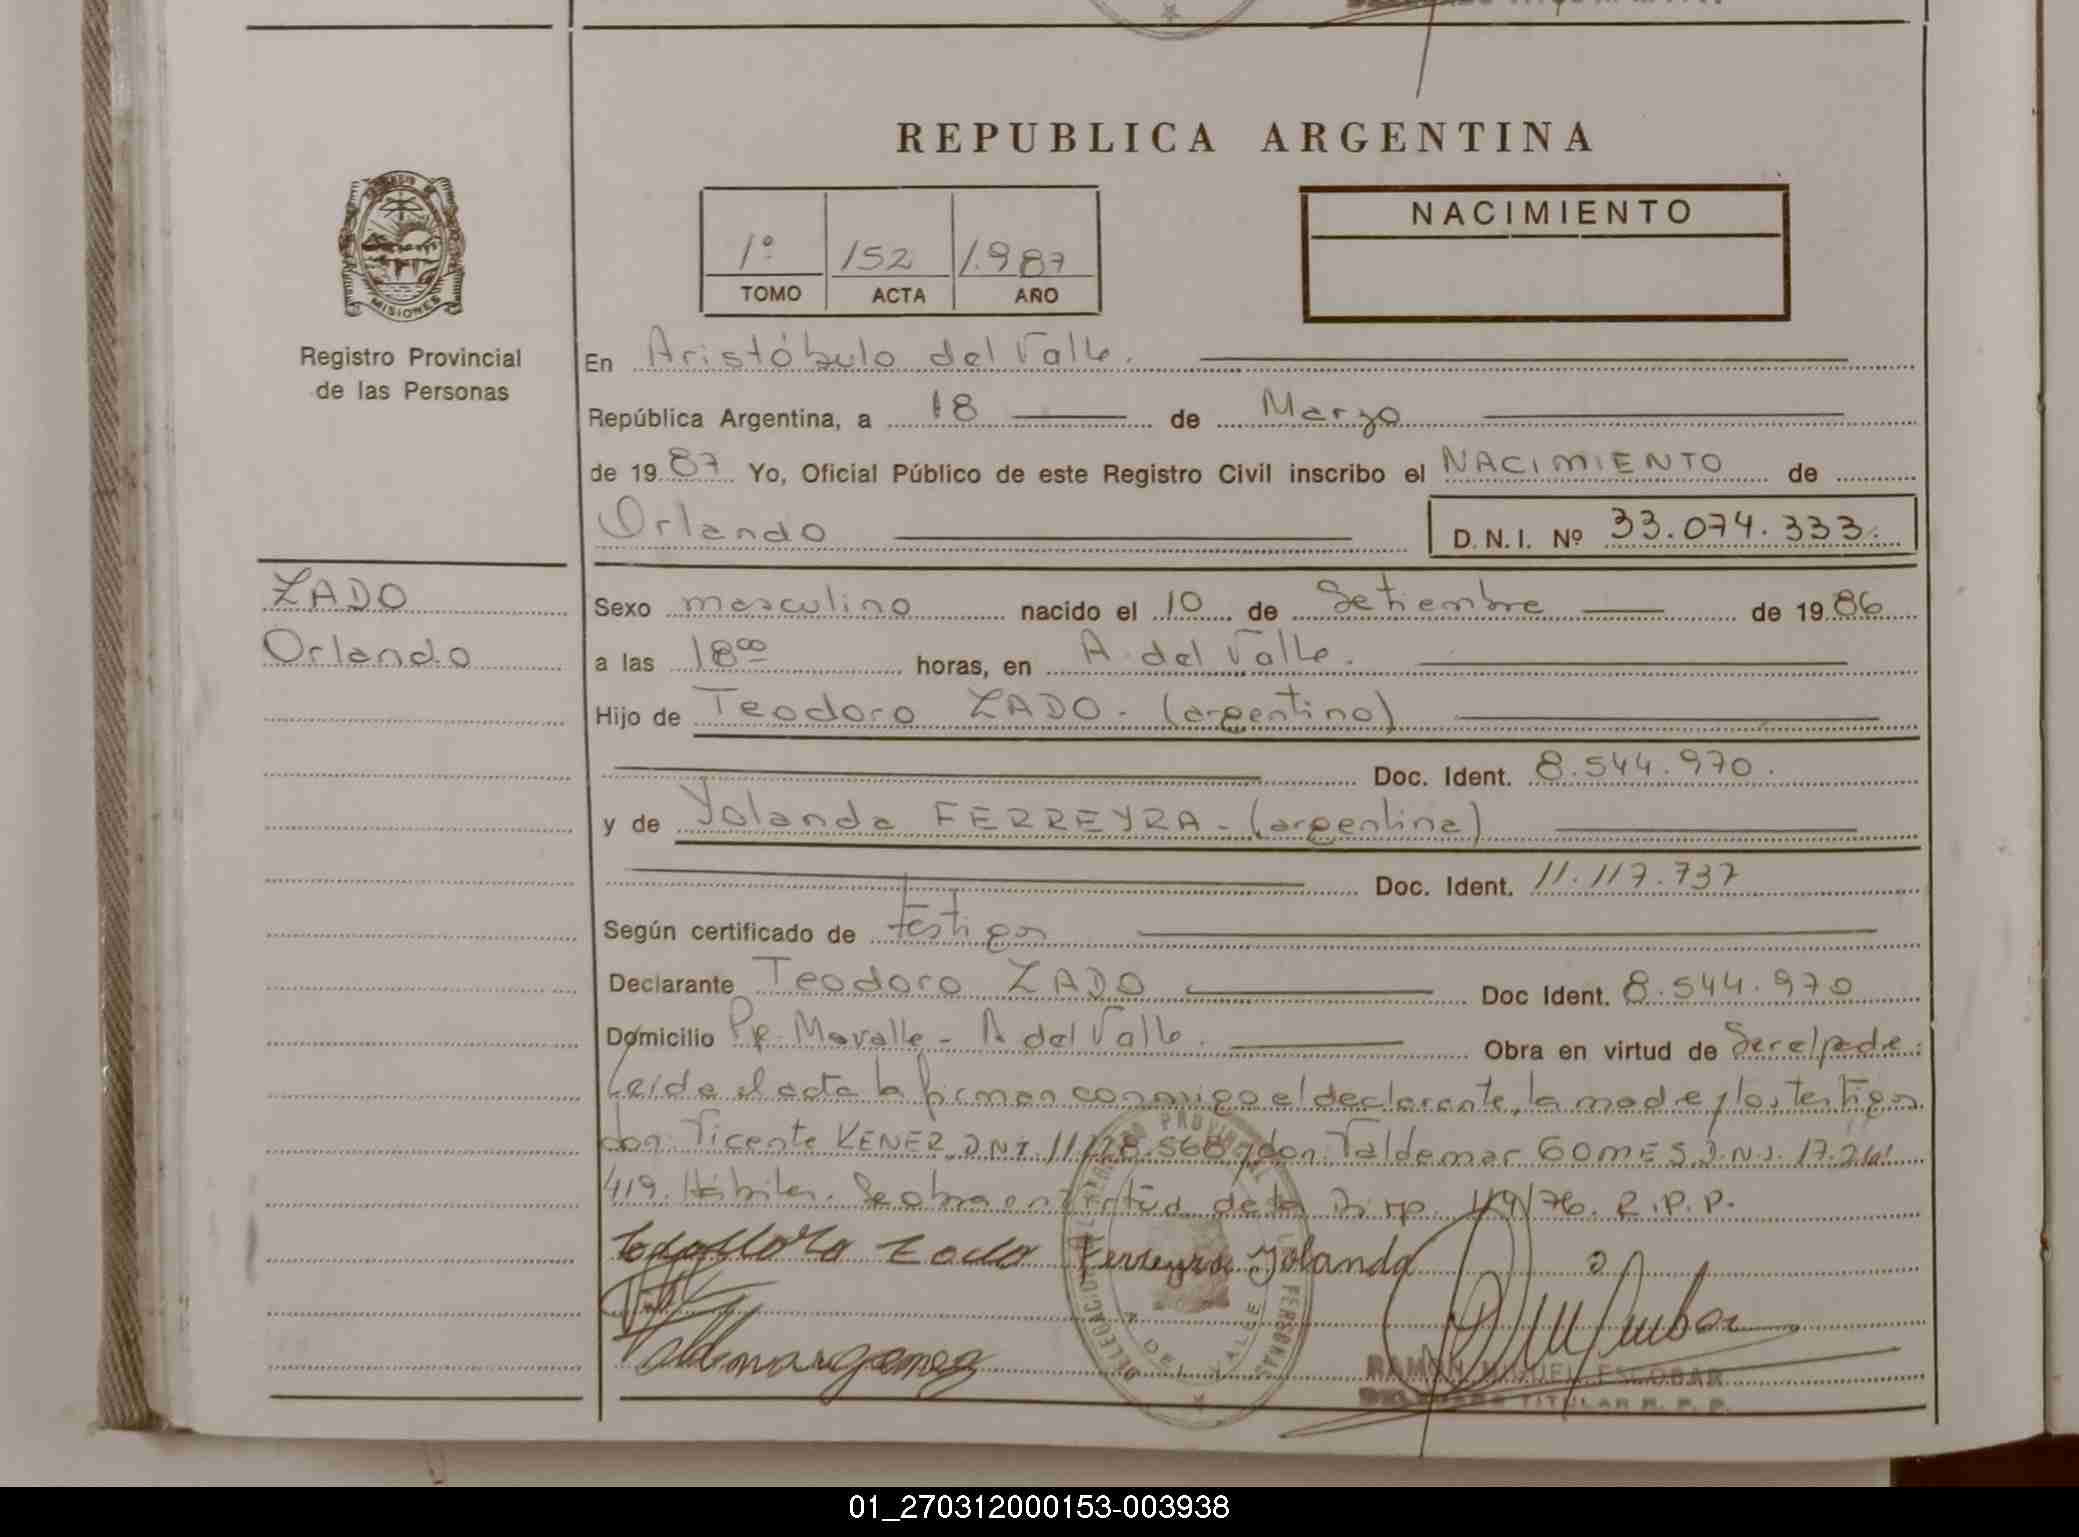 REPUBLICA ARGENTINA
1º 152 1.987
TOMO ACTA AÑO
NACIMIENTO
MISIONES
Registro Provincial
de las Personas
En Aristóbulo del Valle.
República Argentina, a 18 de Marzo
de 1987 Yo, Oficial Público de este Registro Civil inscribo el NACIMIENTO de
Orlando D.N.I. Nº 33.074.333.
ZADO
Orlando
Sexo masculino nacido el 10 de Setiembre de 1986
a las 18°° horas, en A. del Valle.
Hijo de Teodoro ZADO - (argentino)
Doc. Ident. 8.544.970.
y de Yolanda FERREYRA - (argentina)
Doc. Ident. 11.117.737
Según certificado de testigos
Declarante Teodoro ZADO Doc Ident. 8.544.970
Domicilio - A del Valle. Obra en virtud de
Leída el acta la firman conmigo el declarante, la madre y los testigos
don: Vicente KENER DNI 11.128.568 y don: Valdemar GOMES D.N.I. 17.
419. Hábiles. Se obra en virtud de la Disp. 119/76. R.P.P.
Teodoro Zado Ferreyra Yolanda
Valdemar gomes
DELEGACION REGISTRO PROVINCIAL DE LAS PERSONAS
A. DEL VALLE
RAMON MIGUEL ESCOBAR
DELEGADO TITULAR R.P.P.
01_270312000153-003938